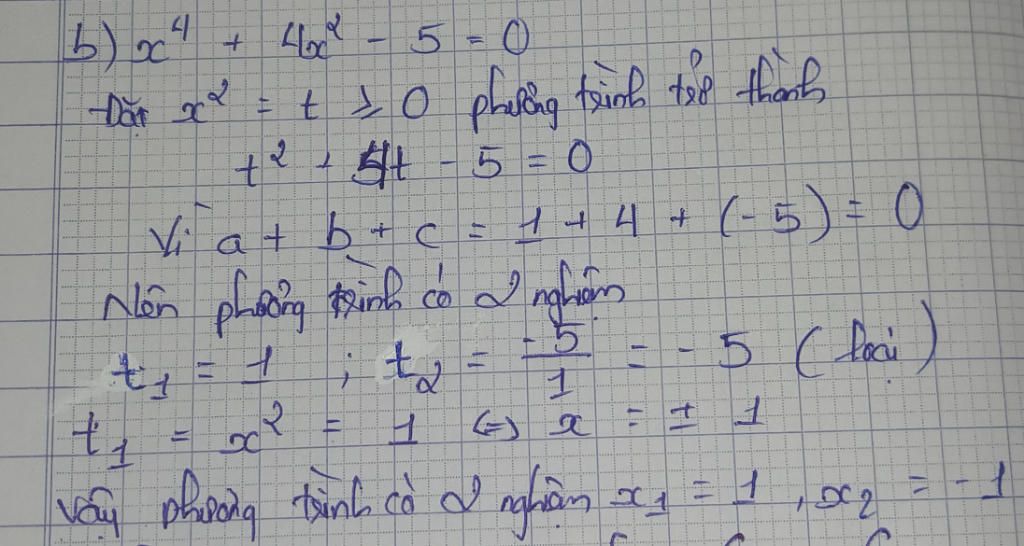 b) x⁴ + 4x² - 5 = 0
Đặt x² = t ≥ 0 phương trình trở thành
t² + 4t - 5 = 0
Vì a + b + c = 1 + 4 + (-5) = 0
Nên phương trình có 2 nghiệm
t₁ = 1 ; t₂ = -5/1 = -5 (loại)
t₁ = x² = 1 ⇔ x = ± 1
Vậy phương trình có 2 nghiệm x₁ = 1, x₂ = -1